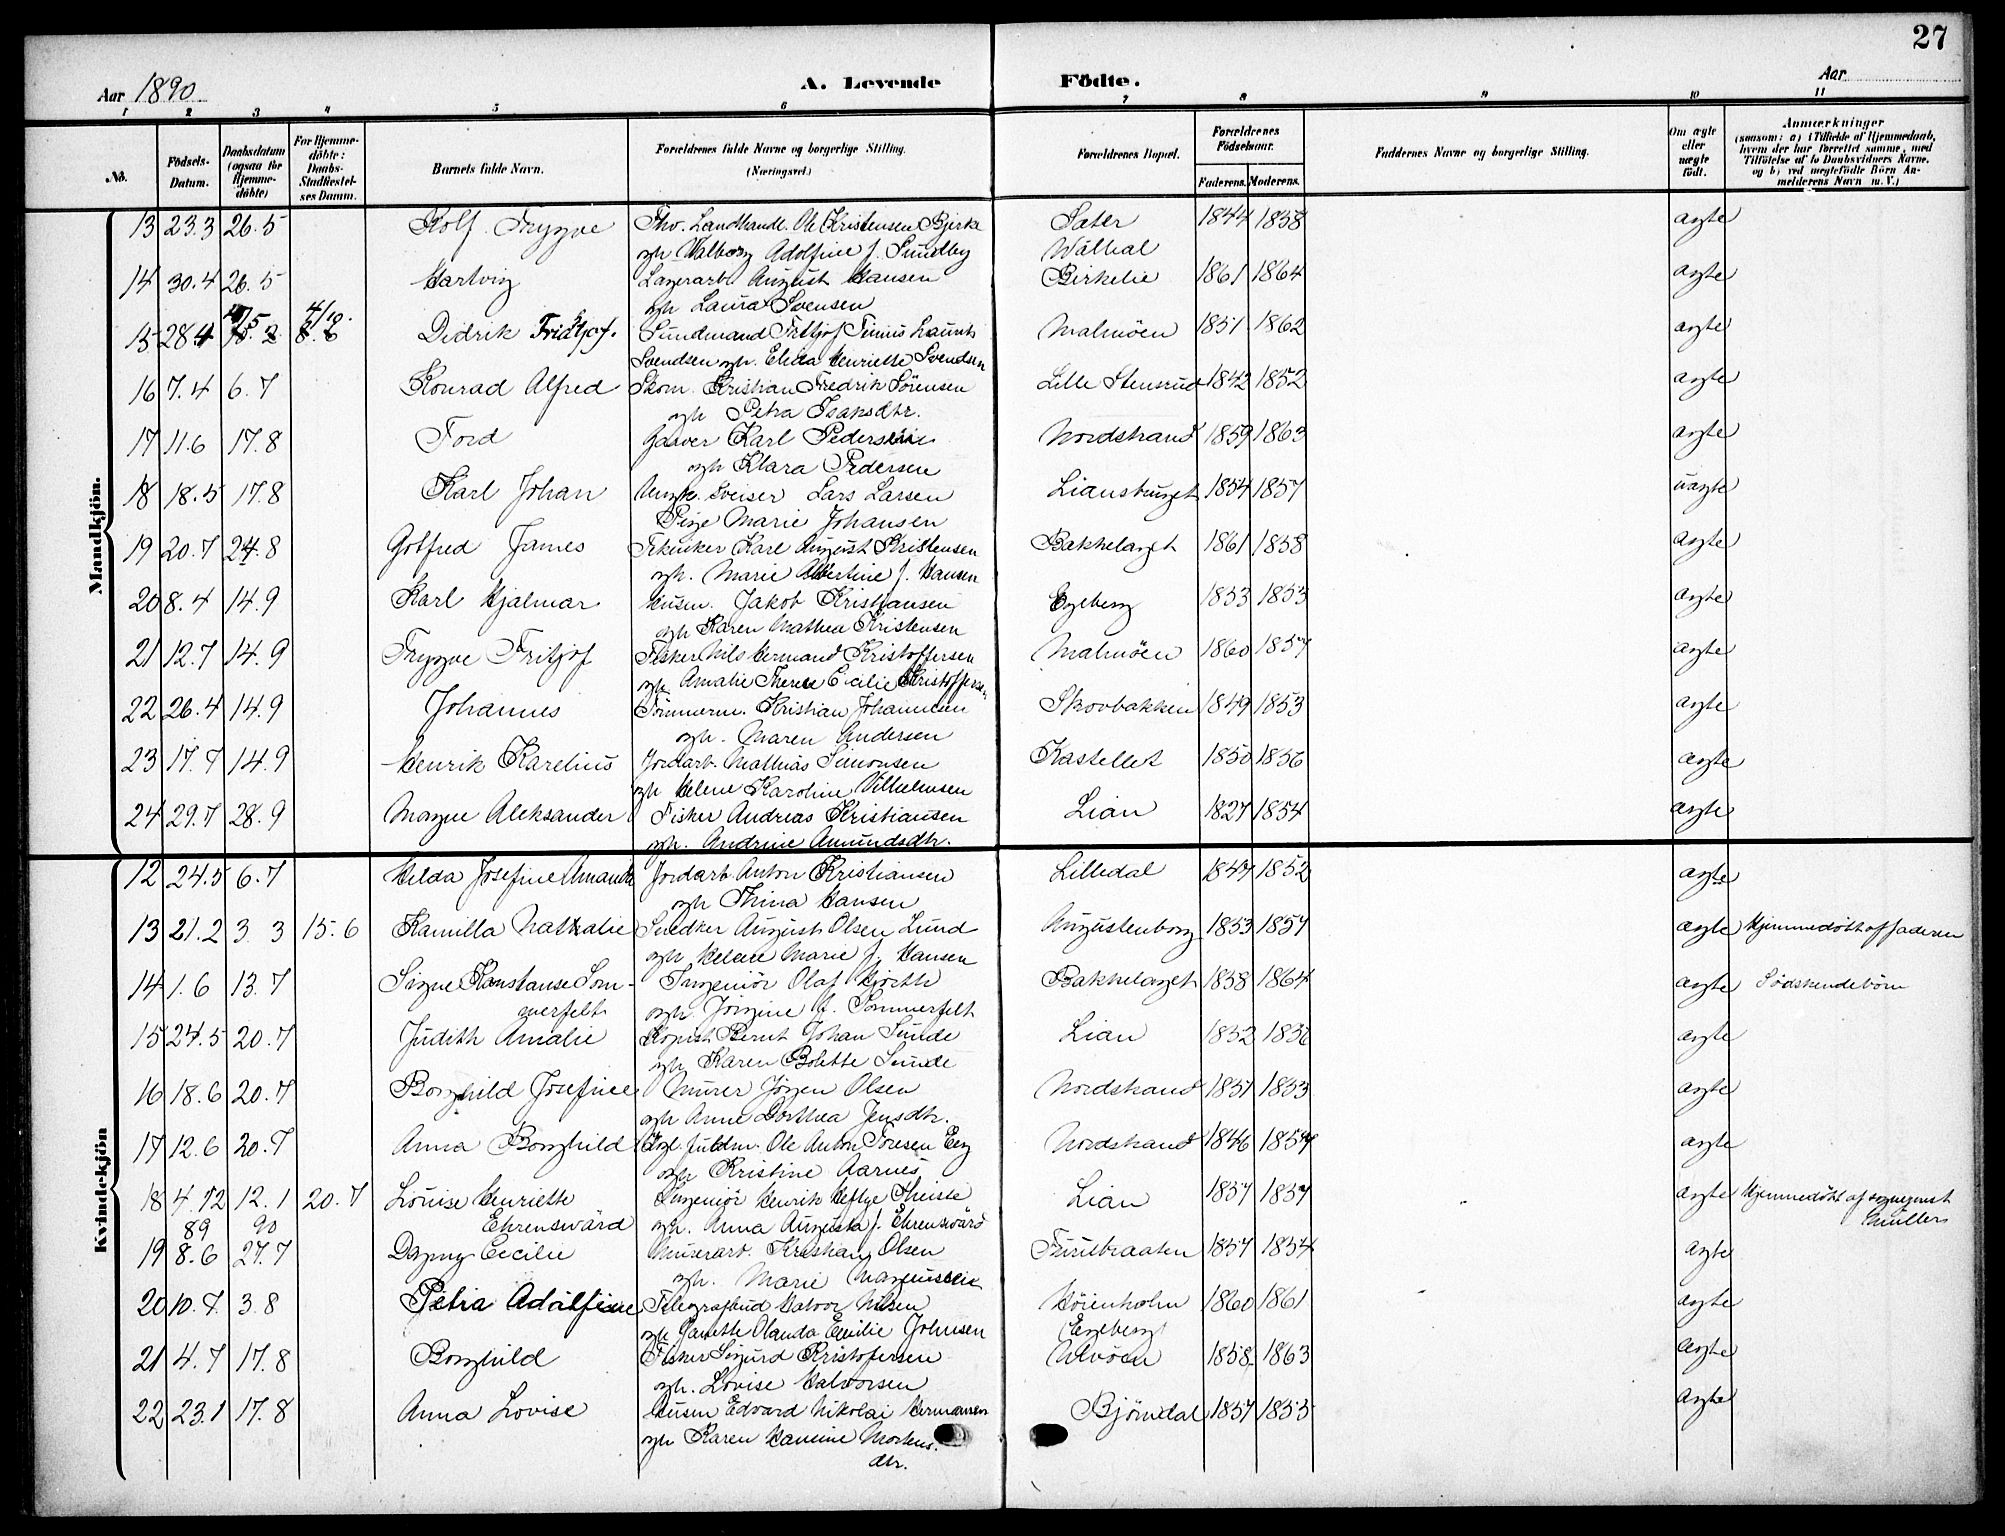 27
Aar 1890
A. Levende Födte.
Aar
1 2 3 4 5 6 7 8 9 10 11
No.
Födsels-Datum.
Daabsdatum (ogsaa for Hjemme-döbte)
For Hjemme-döbte: Daabs-Stadfæstel-ses Datum.
Barnets fulde Navn.
Forældrenes fulde Navne og borgerlige Stilling. (Næringsvei.)
Forældrenes Bopæl.
Forældrenes Födselsaar.
Faderens. Moderens.
Faddernes Navne og borgerlige Stilling.
Om ægte eller uægte födt.
Anmærkninger
(saasom: a) i Tilfælde af Hjemmedaab, hvem der har forrettet samme, med Tilföielse af to Daabsvidners Navne, og b) ved uægtefödte Börn An-melderens Navn m. V.)
Mandkjön.
13 23.3 26.5 Rolf Trygve Thv. Landhandl. Ole Kristensen Bjerke Sæter 1844 1858 ægte
og h. Valborg Adolfine f. Sundby Walhal
14 30.4 26.5 Hartvig Lagerarb. August Hansen Birkelie 1861 1864 ægte
og h. Laura Svensen
15 28.4 Didrik Fridtjof Sundmand Fritjof Tinius Laurits Malmöen 1851 1862 ægte
Svendsen og h. Elida Henriette Svendsen
16 7.4 6.7 Konrad Alfred Skom. Kristian Fredrik Sörensen Lille Stensrud 1842 1852 ægte
og h. Petra Isaksdtr.
17 11.6 17.8 Tord Garver Karl Pedersen Nordstrand 1859 1863 ægte
og h. Klara Pedersen
18 18.5 17.8 Karl Johan Ungk. Sveiser Lars Larsen Liansbruget 1854 1857 uægte
Pige Marie Johansen
19 20.7 24.8 Gotfred James Tekniker Karl August Kristensen Bækkelaget 1861 1858 ægte
og h. Marie Albertine f. Hansen
20 8.4 14.9 Karl Hjalmar Husm. Jakob Kristiansen Egeberg 1853 1853 ægte
og h. Karen Mathea Kristensen
21 12.7 14.9 Trygve Fritjof Fisker Nils Hermand Kristoffersen Malmöen 1860 1857 ægte
og h. Amalie Therese Cecilie Kristoffersen
22 26.4 14.9 Johannes Tömmerm. Kristian Johannesen Skovbakken 1849 1853 ægte
og h. Maren Andersen
23 17.7 14.9 Henrik Karelius Jordarb. Mathias Simonsen Kastellet 1850 1856 ægte
og h. Helene Karoline Vilhelmsen
24 29.7 28.9 Magne Aleksander Fisker Andreas Kristiansen Lian 1827 1854 ægte
og h. Andrine Amundsdtr.
Kvindekjön
12 24.5 6.7 Hilda Josefine Amanda Jordarb. Anton Kristiansen Lilledal 1847 1852 ægte
og h. Thina Hansen
13 21.2 3.3 15.6 Kamilla Nathalie Snedker August Olsen Lund Augustenborg 1853 1857 ægte Hjemmedöbt af faderen
og h. Helene Marie f. Hansen
14 1.6 13.7 Signe Konstanse Som- Ingeniör Olaf Bækkelaget 1858 1864 ægte Södskendebörn
merfelt og h. Jörgine f. Sommerfelt
15 24.5 20.7 Judith Amalie Kopist Bernt Johan Sunde Lian 1852 1856 ægte
og h. Karen Bolette Sunde
16 18.6 20.7 Borghild Josefine Murer Jörgen Olsen Nordstrand 1851 1853 ægte
og h. Anne Dorthea Jensdtr.
17 12.6 20.7 Anna Borghild fuldm. Ole Anton Toresen Eeg Nordstrand 1846 1854 ægte
og h. Kristine Aarnes
18 4.12 12.1 20.7 Louise Henriette Ingeniör Henrik Heftye Theiste Lian 1857 1857 ægte Hjemmedöbt af sognepræst
89 90 Ehrensvärd og h. Anna Augusta f. Ehrensvärd Müller
19 8.6 27.7 Dagny Cecilie Murerarb. Kristian Olsen Furubraaten 1857 1854 ægte
og h. Marie Magnussen
20 10.7 3.8 Petra Adolfine Telegrafbud Halvor Nilsen Höienholm 1860 1861 ægte
og h. Janette Olanda Emilie Johnsen Egeberg
21 4.7 17.8 Borghild Fisker Sigurd Kristofersen Ulvöen 1858 1863 ægte
og h. Lovise Halvorsen
22 23.1 17.8 Anna Lovise Husm Edvard Nikolai Hermansen Björndal 1857 1855 ægte
og h. Karen Hansine Mortens-
dtr.